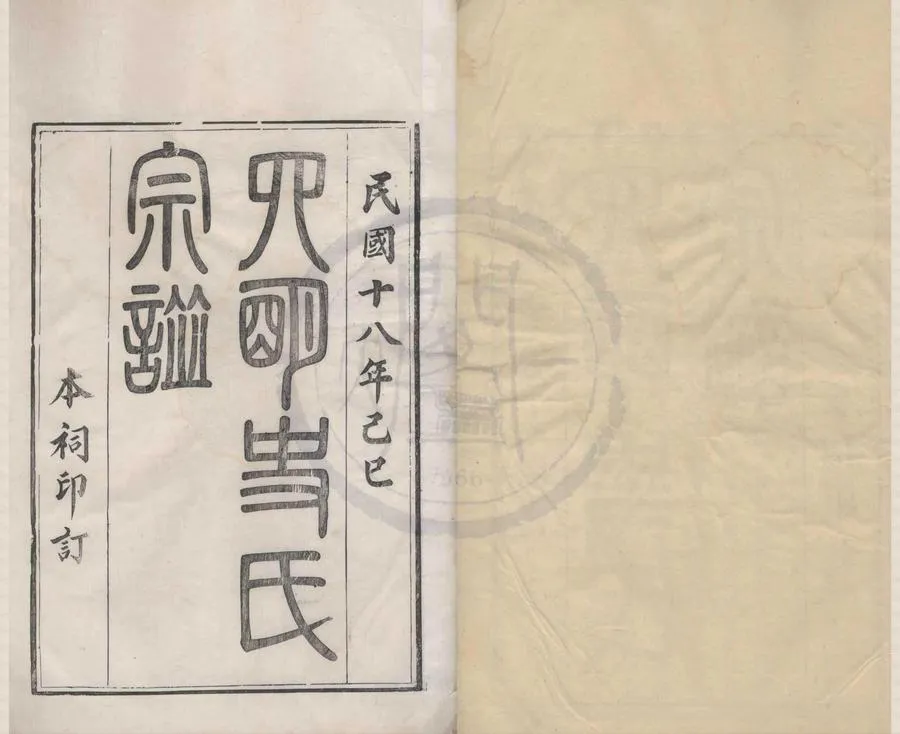 民國十八年己巳
四明史氏
宗譜
本祠印訂